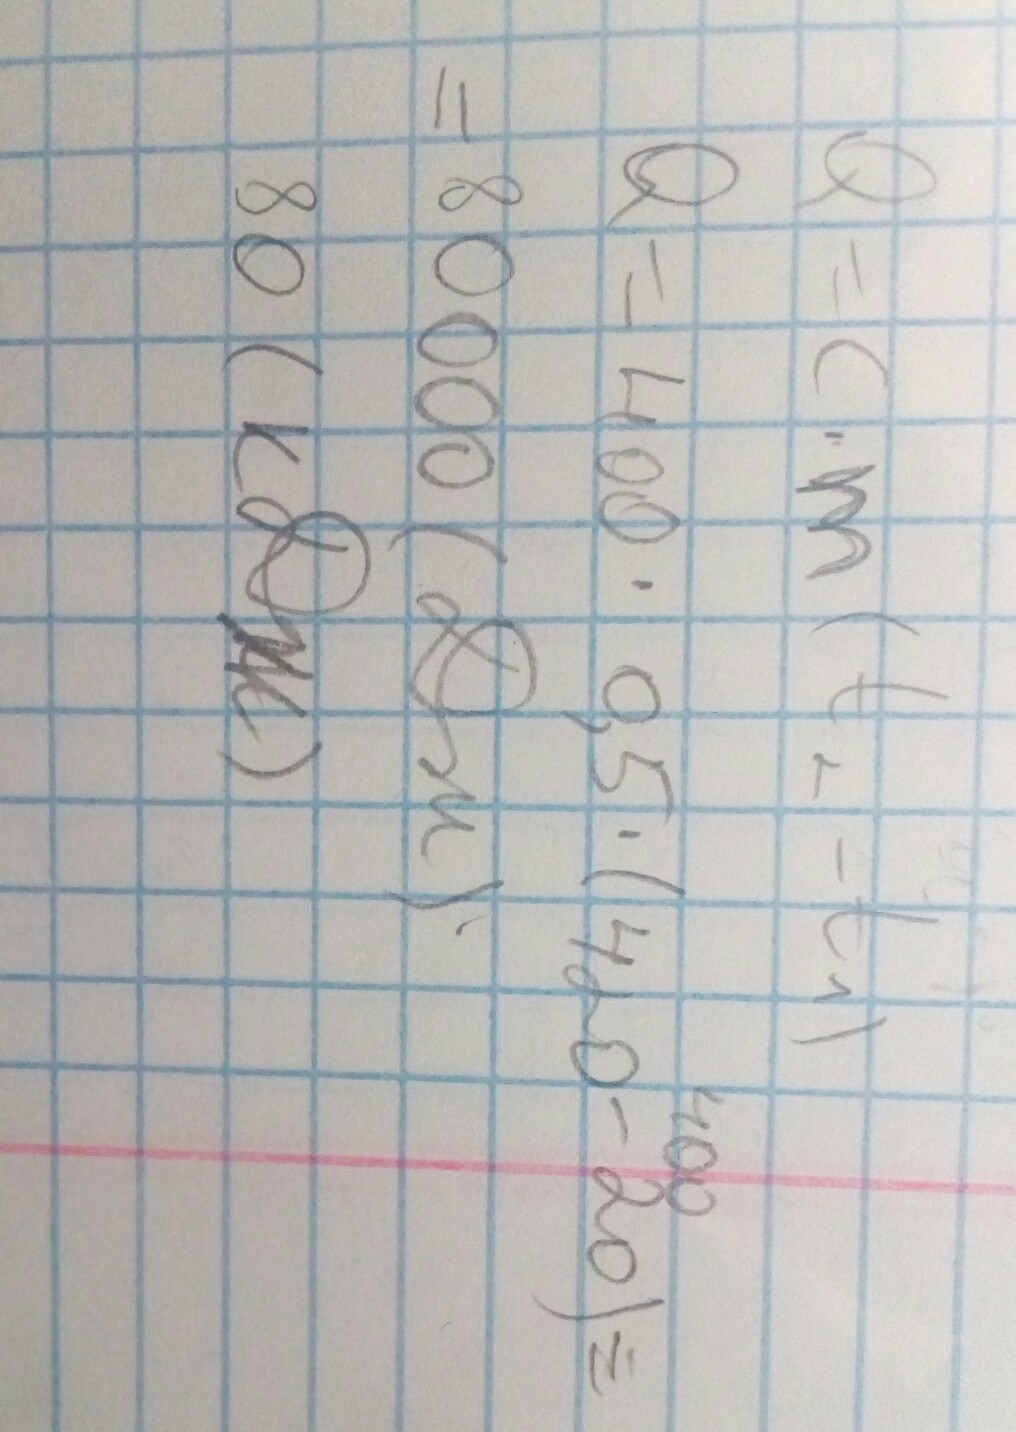 Q = c · m (t₂ - t₁)
400
Q = 400 · 0,5 · (420 - 20) =
= 80000 (Дж)
80 (кДж)